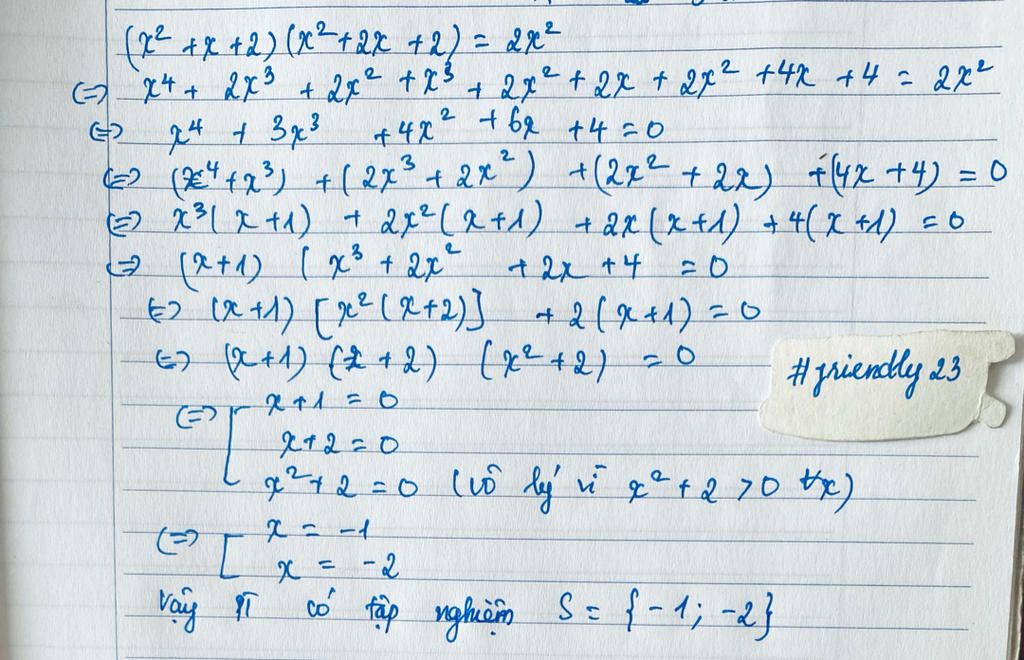 (x² + x + 2) (x² + 2x + 2) = 2x²
⇔ x⁴ + 2x³ + 2x² + x³ + 2x² + 2x + 2x² + 4x + 4 = 2x²
⇔ x⁴ + 3x³ + 4x² + 6x + 4 = 0
⇔ (x⁴ + x³) + (2x³ + 2x²) + (2x² + 2x) + (4x + 4) = 0
⇔ x³(x + 1) + 2x²(x + 1) + 2x(x + 1) + 4(x + 1) = 0
⇔ (x + 1) (x³ + 2x² + 2x + 4 = 0
⇔ (x + 1) [x²(x + 2)] + 2(x + 1) = 0
⇔ (x + 1) (x + 2) (x² + 2) = 0
#friendly 23
⇔ [ x + 1 = 0
x + 2 = 0
x² + 2 = 0 (vô lý vì x² + 2 > 0 ∀x)
⇔ [ x = -1
x = -2
Vậy PT có tập nghiệm S = {-1; -2}